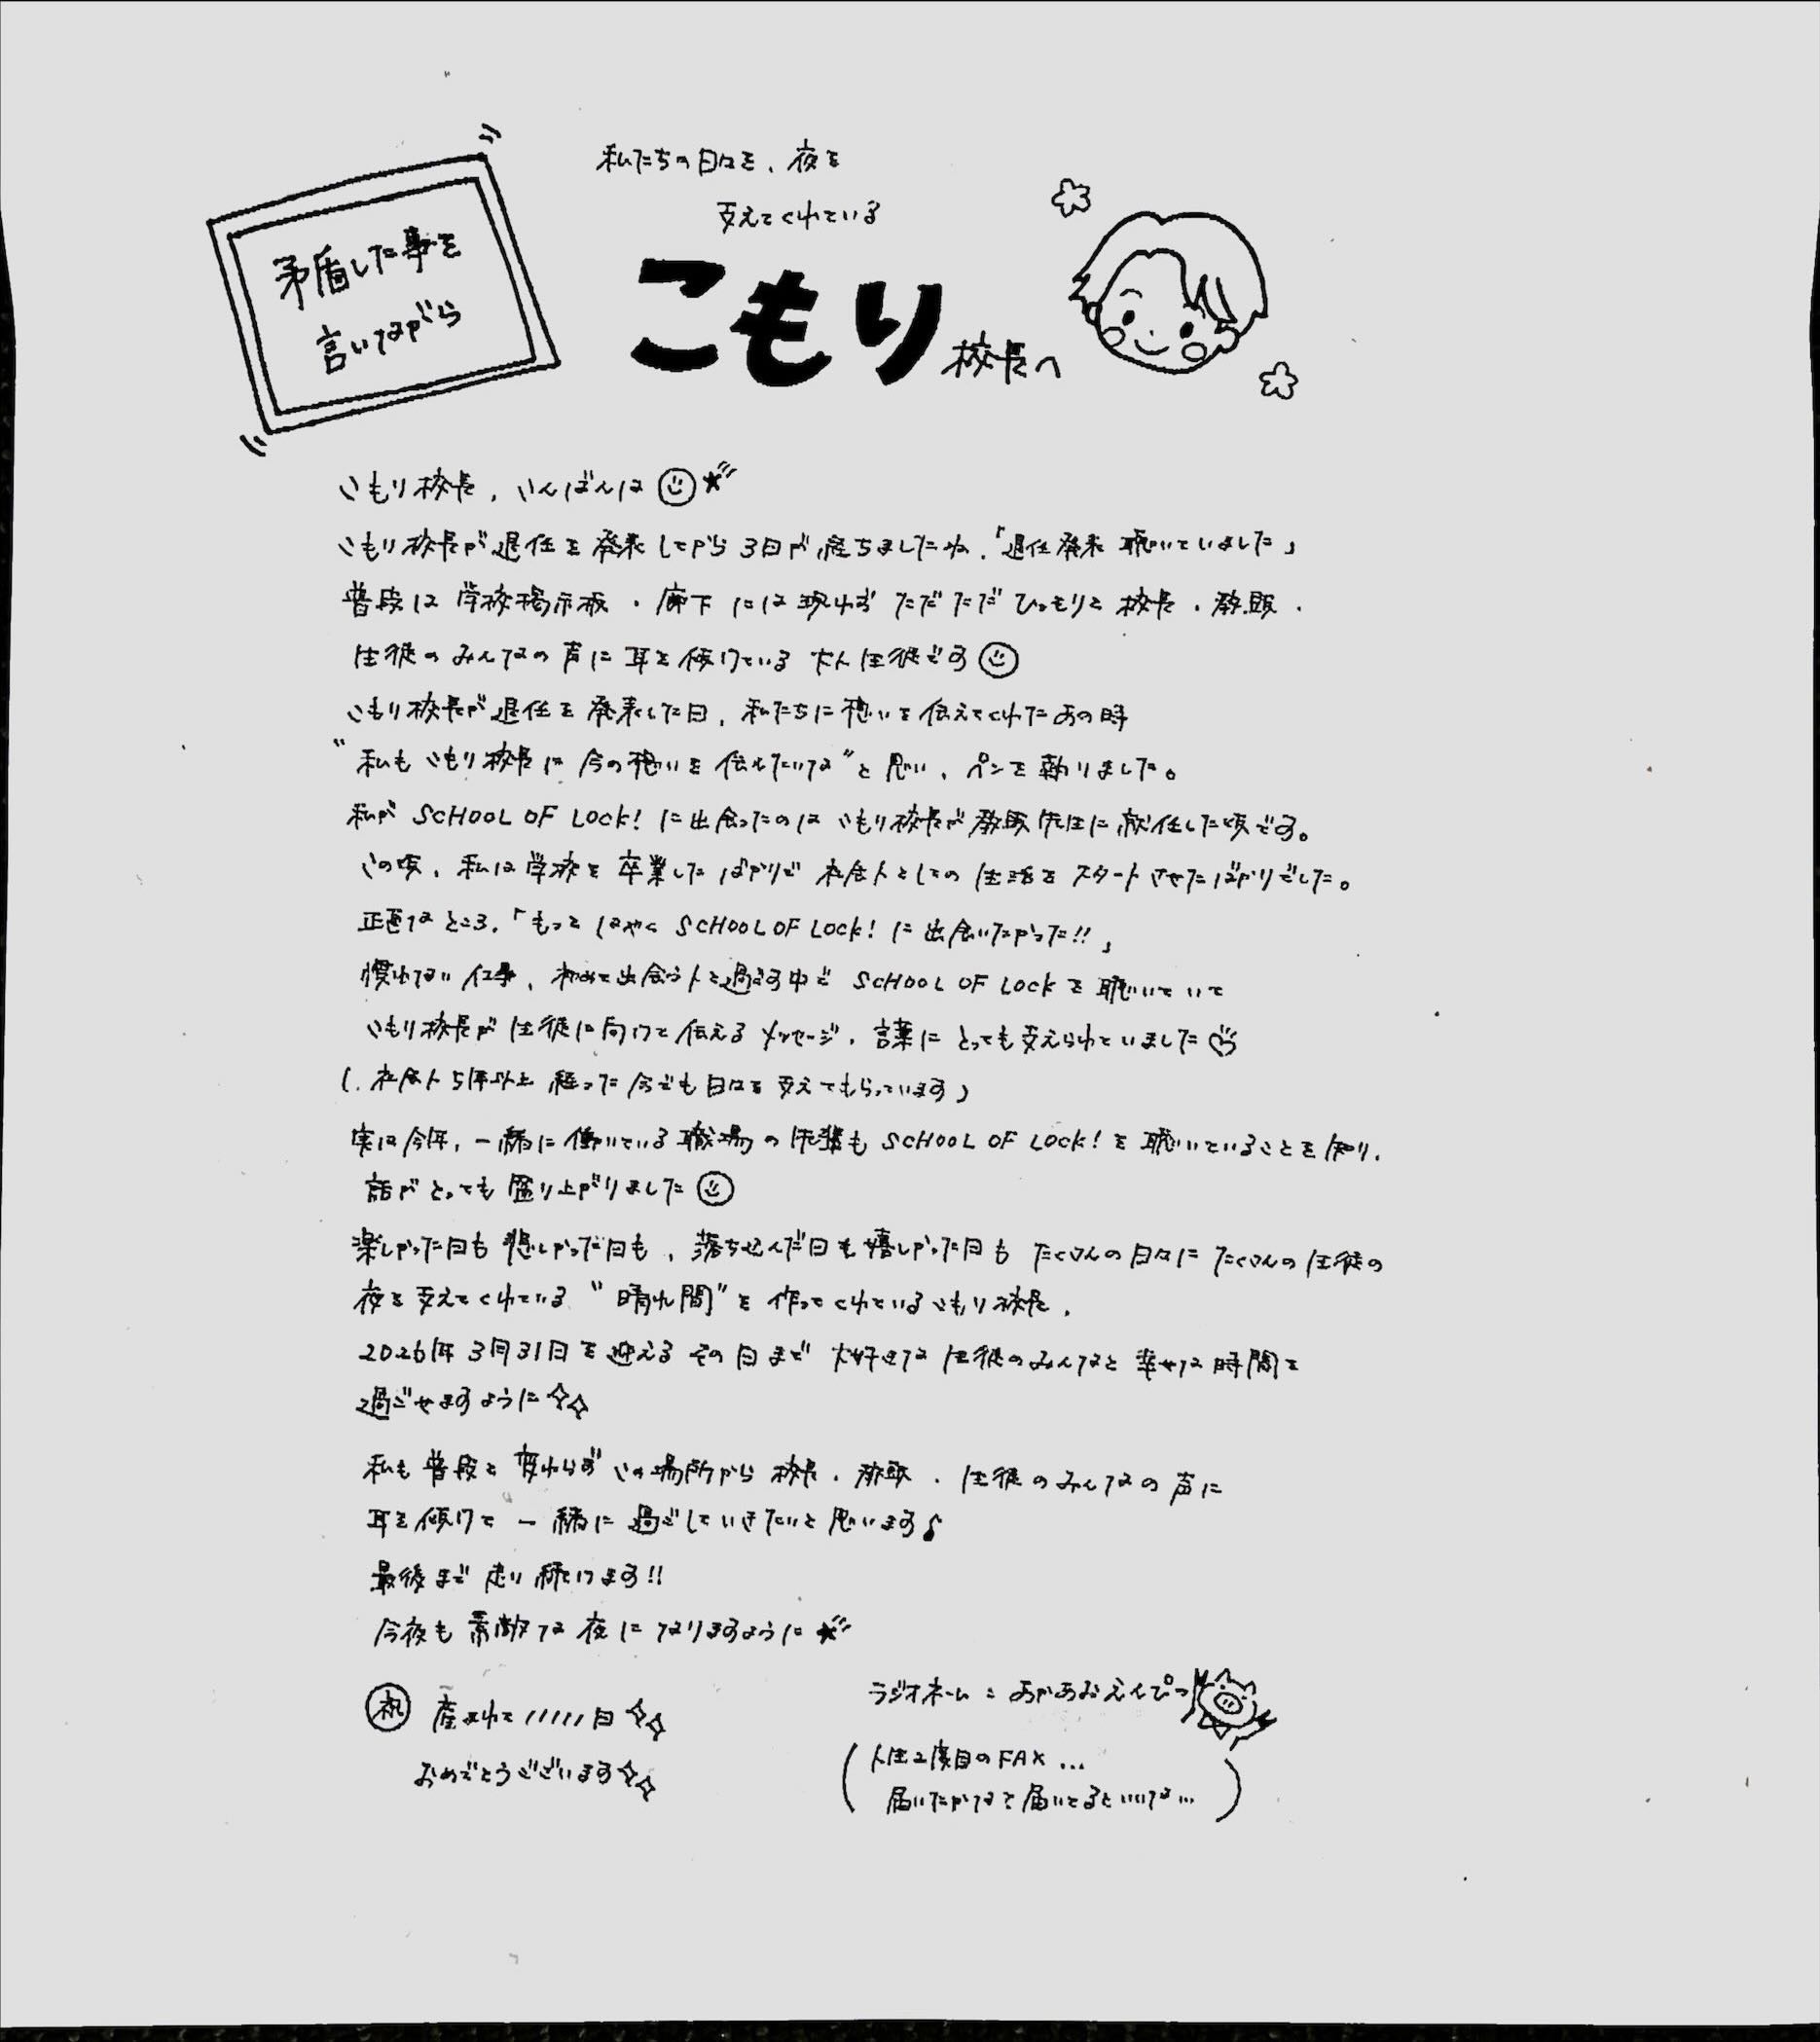 矛盾した事を
言いながら
私たちの日々を、夜を
支えてくれている
こもり校長へ
こもり校長、こんばんは
こもり校長が退任を発表してから3日が経ちましたね、「退任発表 聴いていました」
普段は学校掲示板・廊下には現わずただただひっそりと校長・教頭・
生徒のみんなの声に耳を傾けている大人生徒です
こもり校長が退任を発表した日、私たちに想いを伝えてくれたあの時
"私もこもり校長に今の想いを伝えたいな"と思い、ペンを執りました。
私が SCHOOL OF LOCK! に出会ったのはこもり校長が教頭先生に就任した頃です。
この頃、私は学校を卒業したばかりで社会人としての生活をスタートさせたばかりでした。
正直なところ、「もっとはやく SCHOOL OF LOCK! に出会いたかった!!」
慣れない仕事、初めて出会う人と過ごす中で SCHOOL OF LOCK を聴いていて
こもり校長が生徒に向けて伝えるメッセージ、言葉にとっても支えられていました
(、社会人5年以上経った今でも日々を支えてもらっています)
実は今年、一緒に働いている職場の先輩も SCHOOL OF LOCK! を聴いていることを知り、
話がとっても盛り上がりました
楽しかった日も悲しかった日も、落ち込んだ日も嬉しかった日もたくさんの日々にたくさんの生徒の
夜を支えてくれている"晴れ間"を作ってくれているこもり校長、
2026年3月31日を迎えるその日まで大好きな生徒のみんなと幸せな時間を
過ごせますように
私も普段と変わらずこの場所から校長・教頭・生徒のみんなの声に
耳を傾けて一緒に過ごしていきたいと思います♪
最後まで走り続けます!!
今夜も素敵な夜になりますように
祝 産まれて11111日
おめでとうございます
ラジオネーム：あかあおえんぴつ
(人生2度目のFAX...
届いたかな?届いてるといいな...)